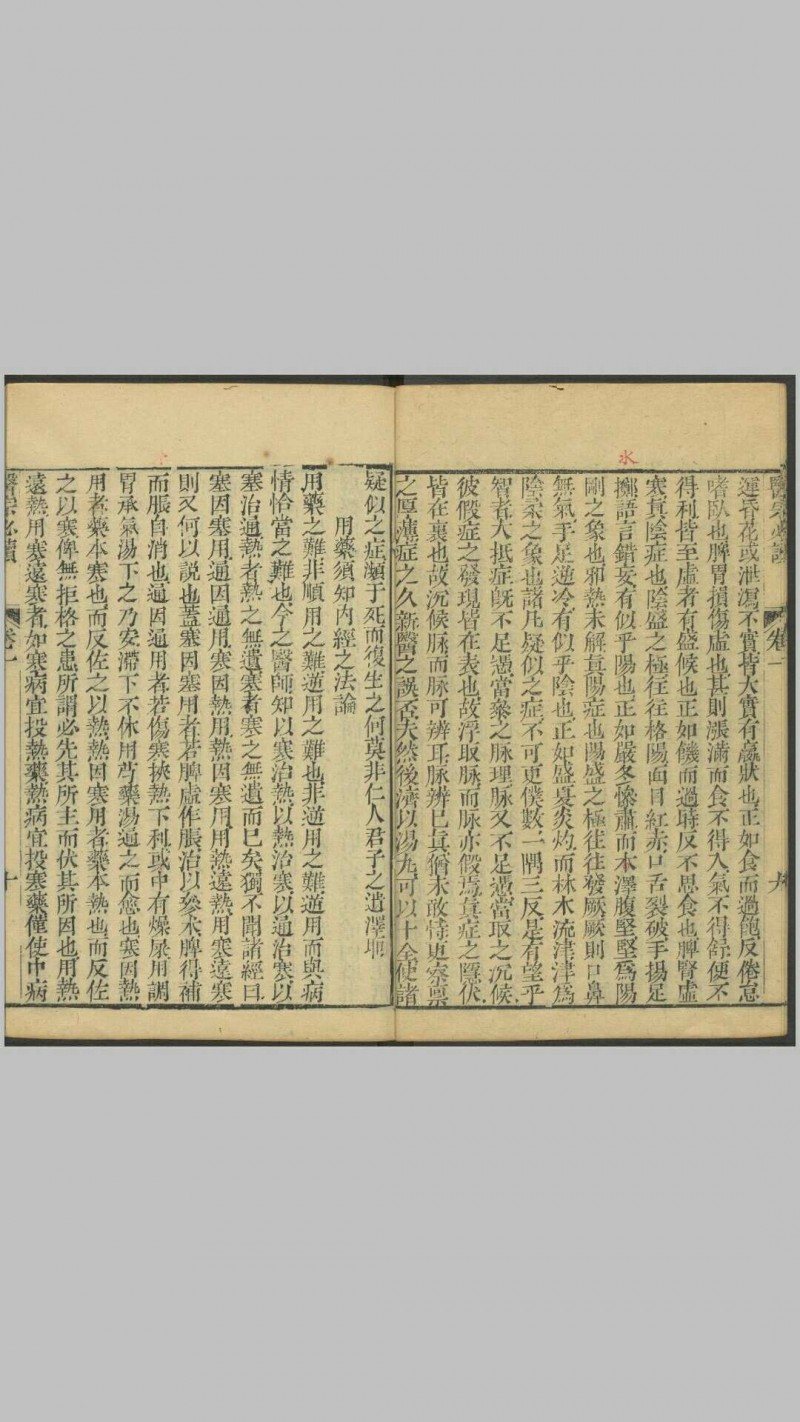 水
醫宗必讀 卷一 九
運昏花或泄瀉不實皆大實有羸狀也正如食而過飽反倦怠
嗜臥也脾胃損傷虛也甚則漲滿而食不得入氣不得舒便不
得利皆至虛者有盛候也正如饑而過時反不思食也脾腎虛
寒真陰症也陰盛之極往往格陽面目紅赤口舌裂破手揚足
擲語言錯妄有似乎陽也正如嚴冬慘肅而水澤腹堅堅為陽
剛之象也邪熱未解真陽症也陽盛之極往往發厥厥則口鼻
無氣手足逆冷有似乎陰也正如盛夏炎灼而林木流津津為
陰柔之象也諸凡疑似之症不可更僕數一隅三反是有望乎
智者大抵症既不足憑當叅之脉理脉又不足憑當取之沉候
彼假症之發現皆在表也故浮取脉而脉亦假焉真症之隱伏
皆在裏也故沉候脉而脉可辨耳脉辨已真猶未敢恃更察禀
之厚薄症之久新醫之誤否夫然後濟以湯丸可以十全使諸
疑似之症瀕于死而復生之何莫非仁人君子之遺澤耶
用藥須知內經之法論
用藥之難非順用之難逆用之難也非逆用之難逆用而與病
情恰當之難也今之醫師知以寒治熱以熱治寒以通治塞以
塞治通熱者熱之無遺寒者寒之無遺而已矣獨不聞諸經曰
塞因塞用通因通用寒因熱用熱因寒用用熱遠熱用寒遠寒
則又何以說也蓋塞因塞用者若脾虛作脹治以參朮脾得補
而脹自消也通因通用者若傷寒挾熱下利或中有燥屎用調
胃承氣湯下之乃安滯下不休用芍藥湯通之而愈也寒因熱
用者藥本寒也而反佐之以熱熱因寒用者藥本熱也而反佐
之以寒俾無拒格之患所謂必先其所主而伏其所因也用熱
遠熱用寒遠寒者如寒病宜投熱藥熱病宜投寒藥僅使中病
醫宗必讀 卷一 十